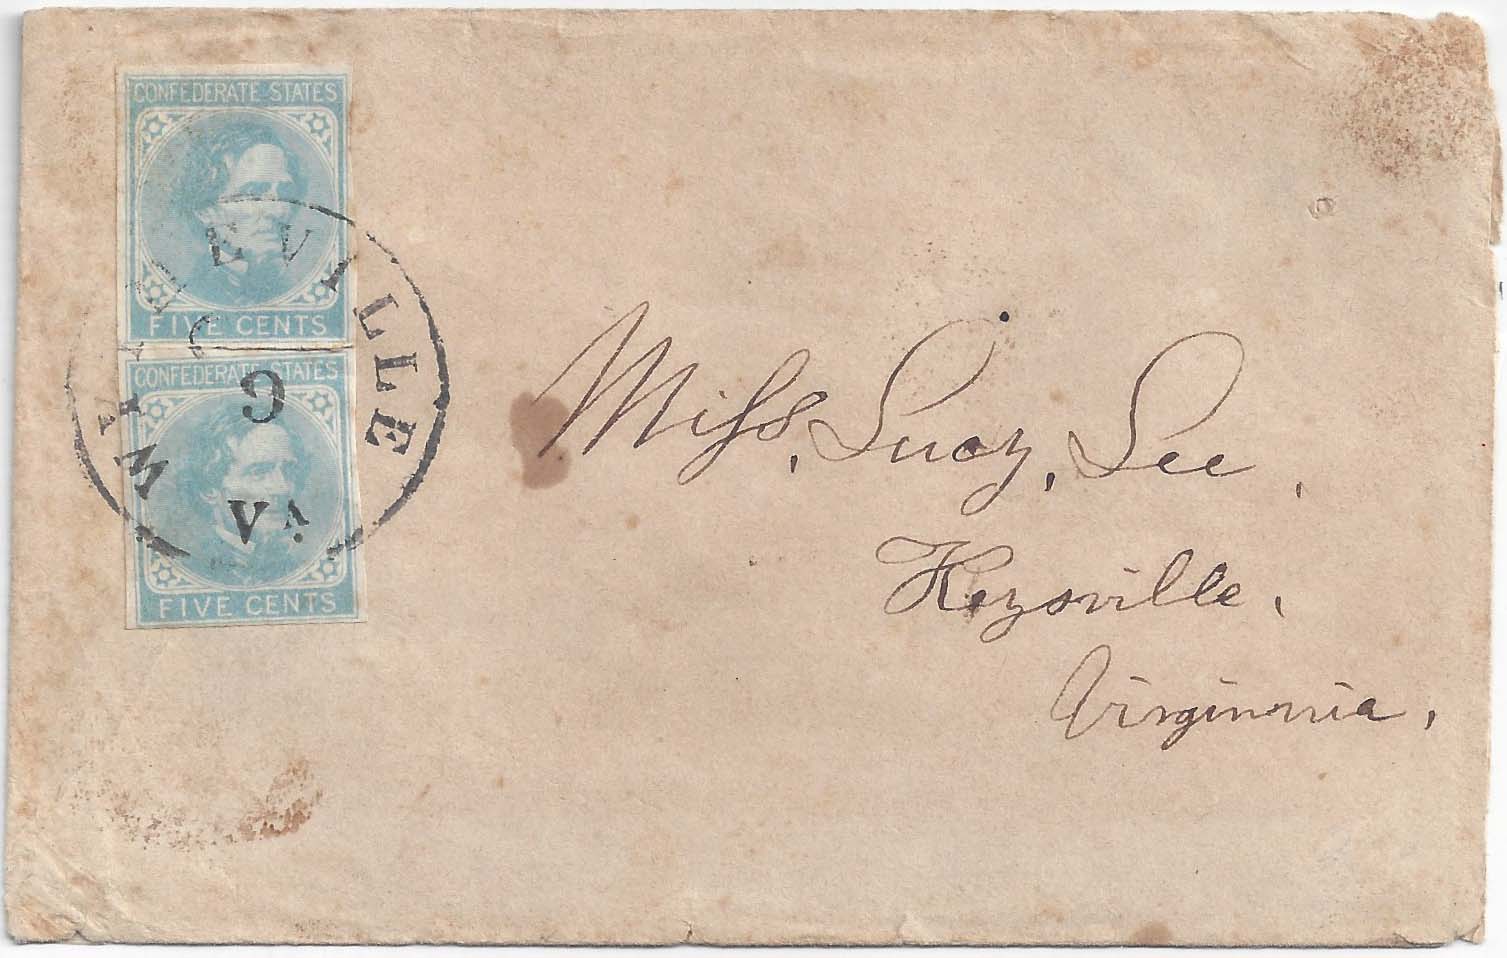 CONFEDERATE STATES
FIVE CENTS
CONFEDERATE STATES
FIVE CENTS
WYTHEVILLE
VA
Miss, Lucy, Lee,
Keysville,
Virginnia,